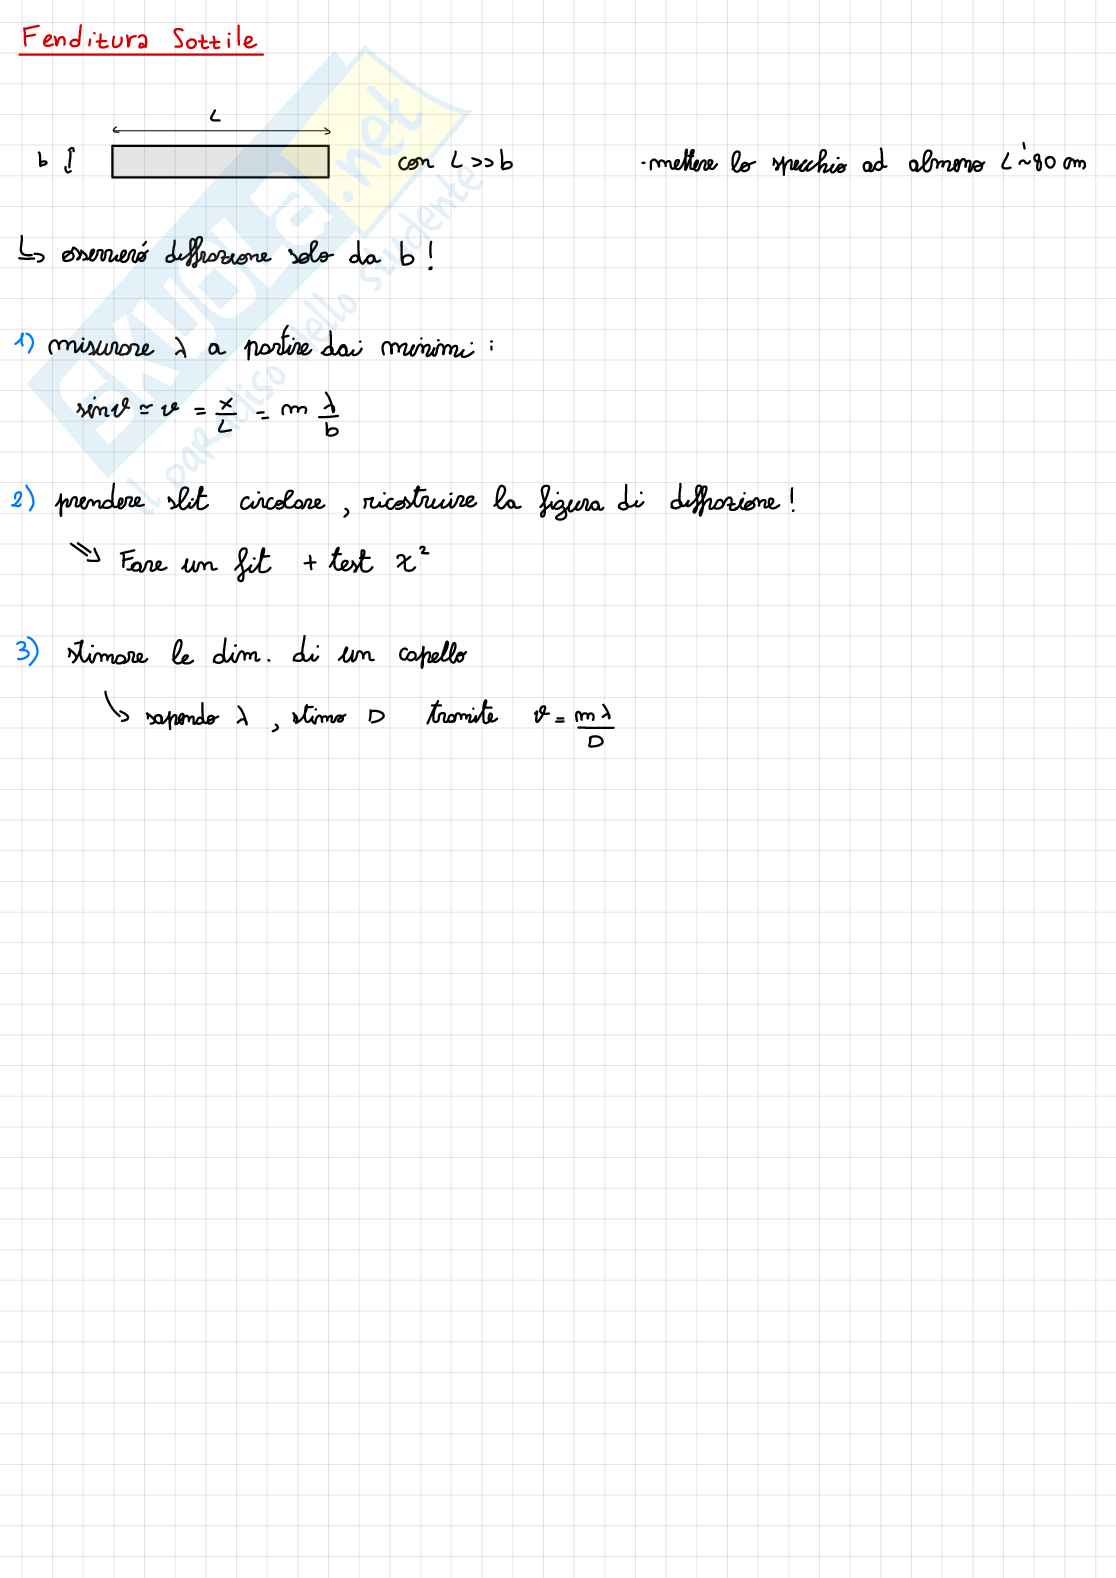 Fenditura Sottile
L
b
con L >> b
· mettere lo specchio ad almeno L' ~ 80 cm
↳ osserverò diffrazione solo da b !
1) misurare λ a partire dai minimi :
sinϑ ≃ ϑ = x/L = m λ/b
2) prendere slit circolare , ricostruire la figura di diffrazione !
⇒ Fare un fit + test χ²
3) stimare le dim. di un capello
↳ sapendo λ , stimo D tramite ϑ = mλ/D
SKUOLA.net
il paradiso dello studente